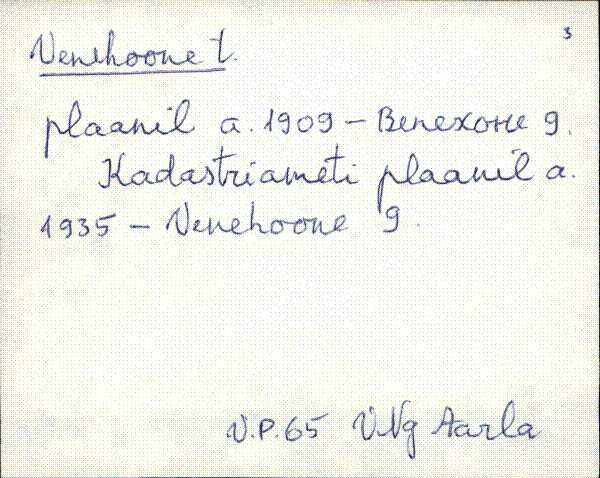 3
Venehoone t.
plaanil a. 1909 – Венехоне 9.
Kadastriameti plaanil a.
1935 – Venehoone 9.
V.P. 65 VNg Aarla